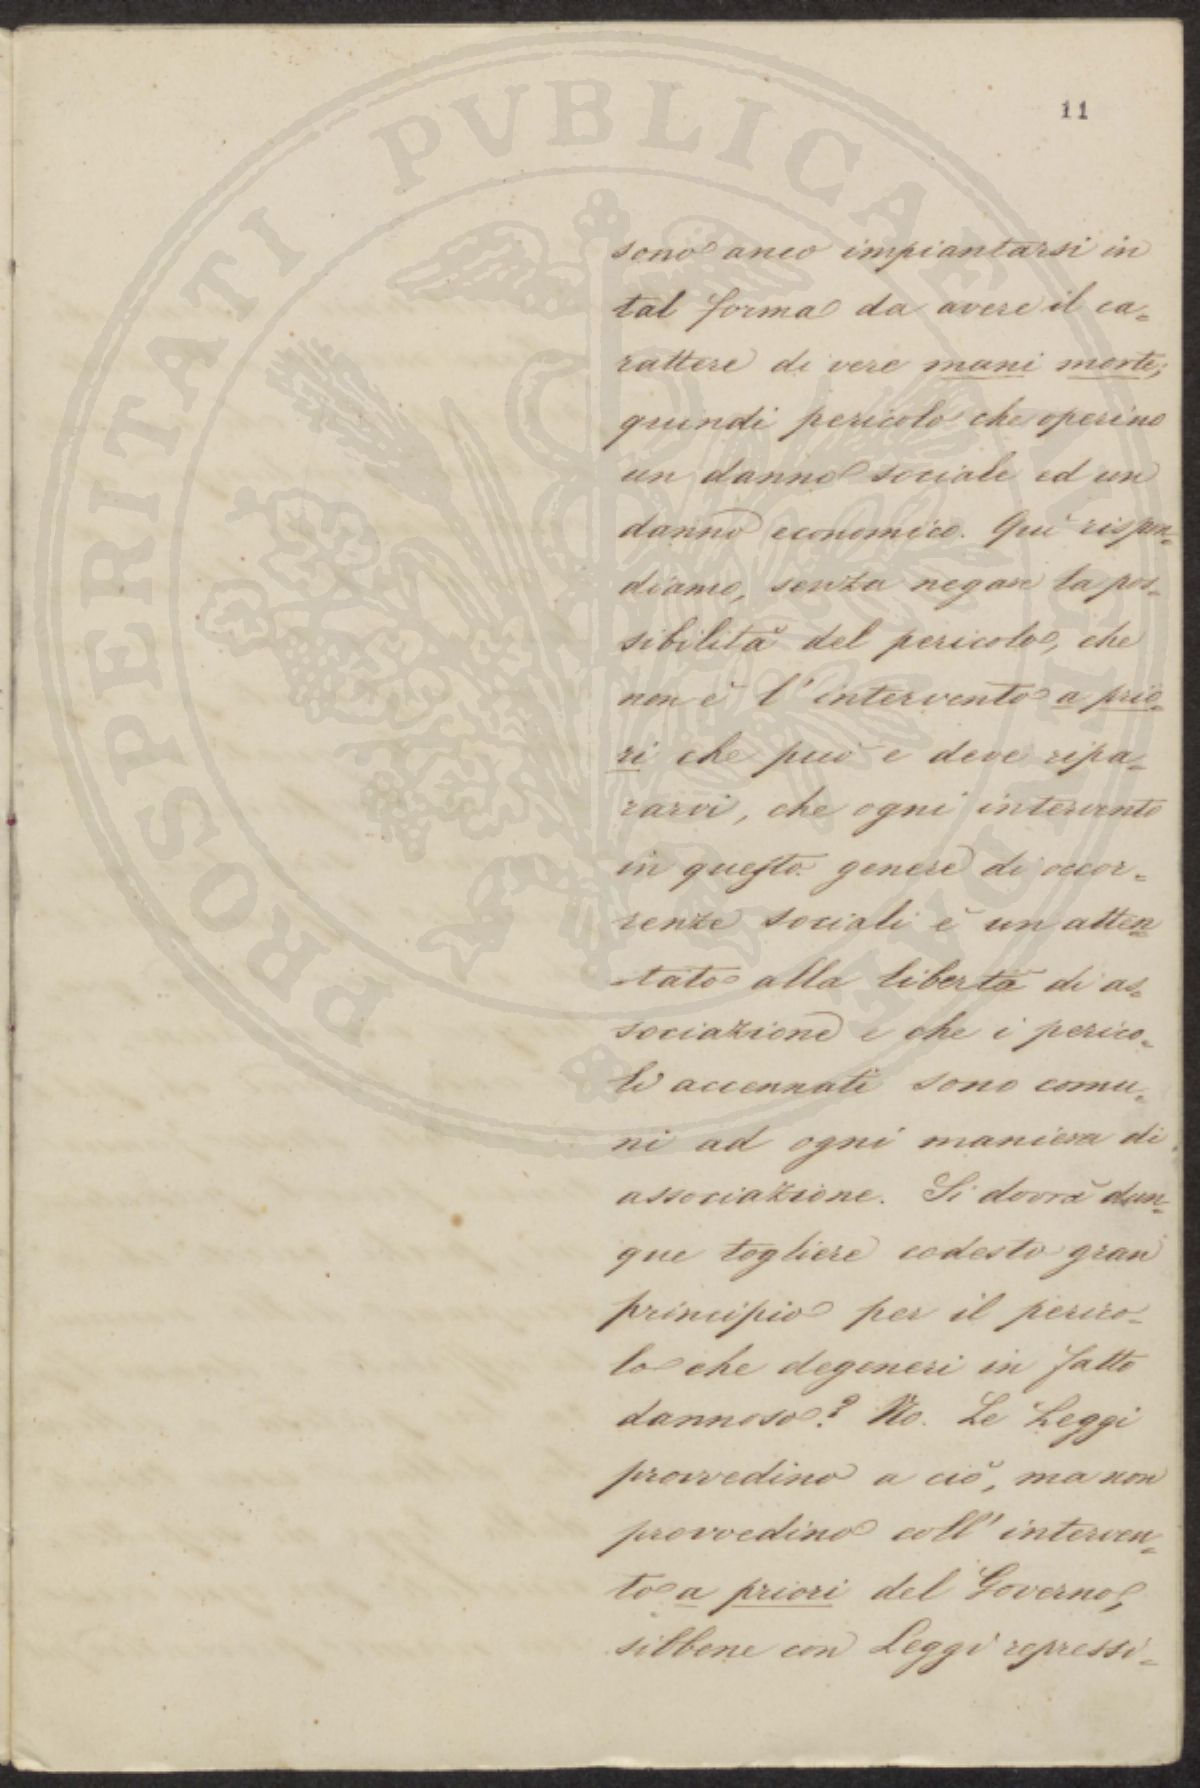 PROSPERITATI PUBLICAE AUGENDAE
11
sono anco impiantarsi in
tal forma da avere il ca=
rattere di vere mani morte;
quindi pericolo che operino
un danno sociale ed un
danno economico. Qui rispon=
diamo, senza negare la pos=
sibilità del pericolo, che
non è l'intervento a prio=
ri che può e deve ripa=
rarvi, che ogni intervento
in questo genere di occor=
renze sociali è un atten=
tato alla libertà di as=
sociazione e che i perico=
li accennati sono comu=
ni ad ogni maniera di
associazione. Si dovrà dun=
que togliere codesto gran
principio per il perico=
lo che degeneri in fatto
dannoso? No. Le Leggi
provvedino a ciò, ma non
provvedino coll'interven=
to a priori del Governo,
sibbene con Leggi repressi=